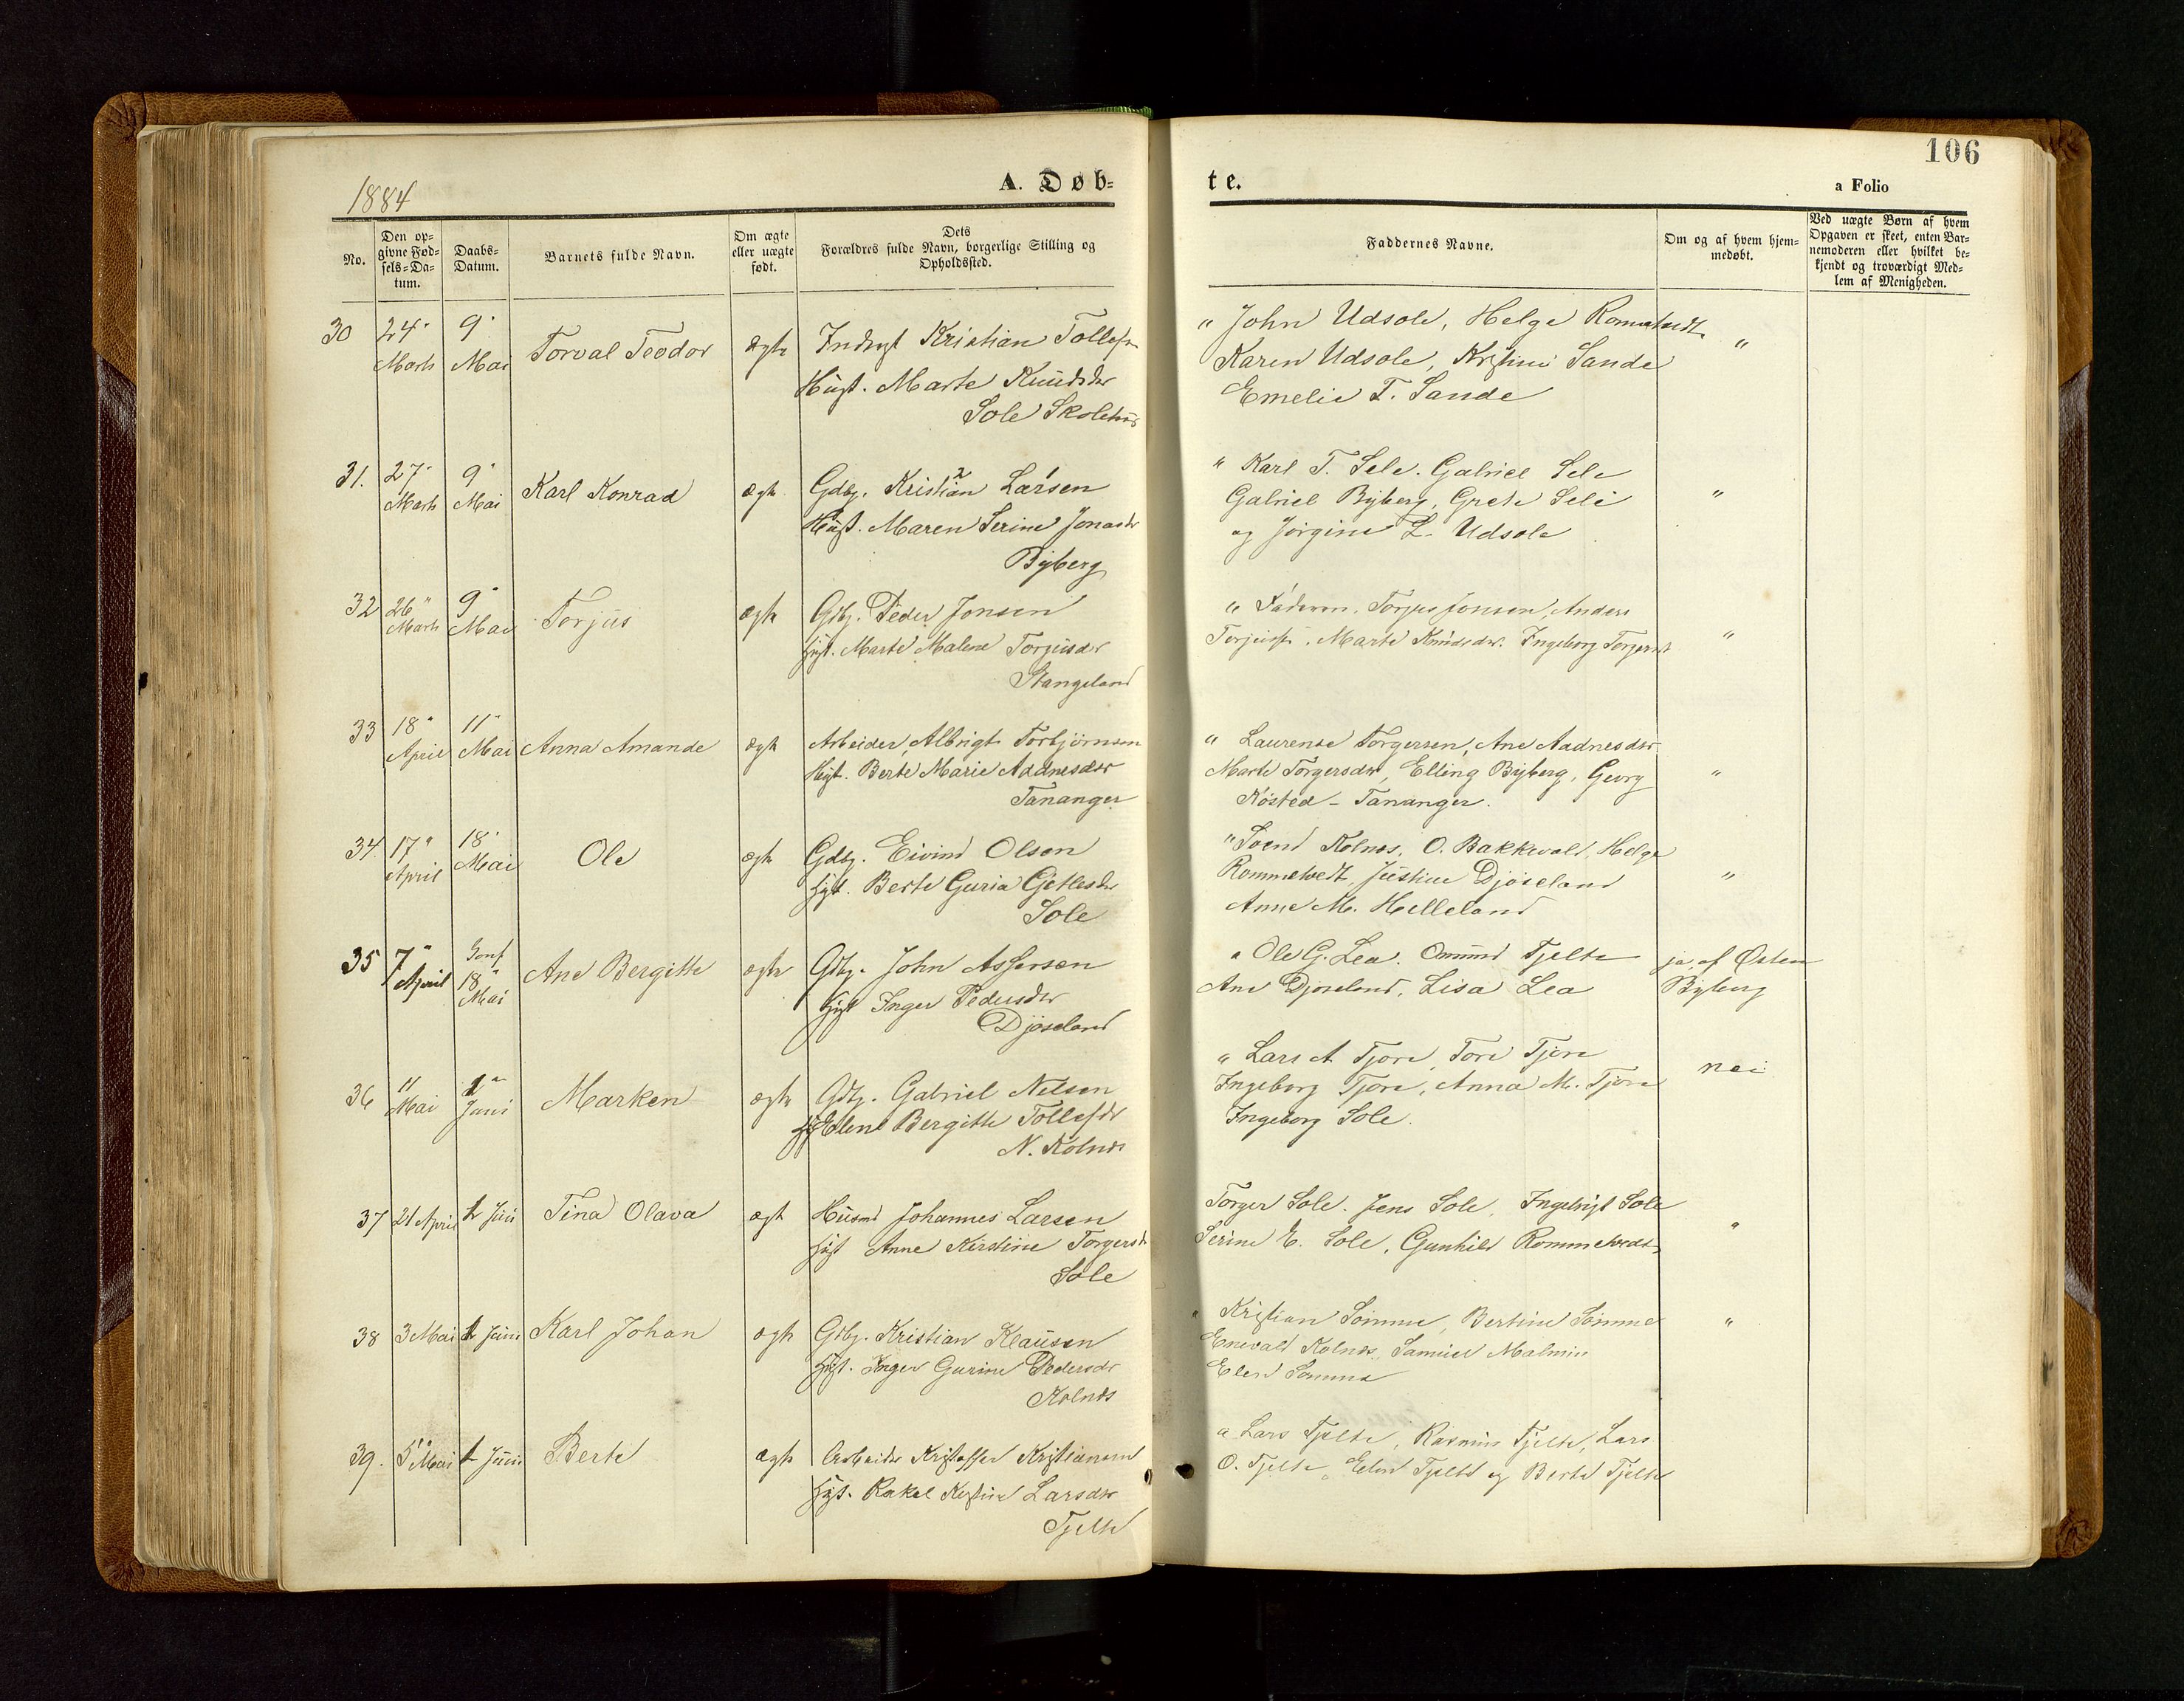 1884
A. Døb-
No.
Den op-
givne Fød-
sels-Da-
tum.
Daabs-
Datum.
Barnets fulde Navn.
Om ægte
eller uægte
født.
Dets
Forældres fulde Navn, borgerlige Stilling og
Opholdssted.
30 24" 9" Torval Teodor ægte Kristian
Marts Mai
Hust. Marte Knudsdr
Sole Skolehus
31. 27" 9" Karl Konrad ægte Gdbg. Kristian Larsen
Marts Mai
Hust. Maren Serine Jonasdr
Byberg
32 26" 9" Torjus ægte Gdbg. Peder Jonsen
Marts Mai
Hust. Marte Malene Torjusdr
Stangeland
33 18" 11" Anna Amande ægte Arbeider Albrigt Torbjørnsen
April Mai
Hust. Berte Marie Aadnesdr
Tananger
34 17" 18" Ole ægte Gdbg. Eivind Olsen
April Mai
Hust. Berte Guria
Sole
35 7" 18" Ane Bergitte ægte Gdbg. John Assersen
April Mai
Hust Inger Pedersdr
Djøseland
36 11 1" Marken ægte Gdbg. Gabriel Nelsen
Mai Juni
Elene Bergitte Tollefsdr
N. Kolnes
37 21 April 1 Juni Tina Olava ægt Husmd Johannes Larsen
Hust Anne Kirstine Torgersdr
Sole
38 3 Mai 1 Juni Karl Johan ægte Gdbg. Kristian Klausen
Hust. Inger Gurine Pedersdr
Kolnes
39. 5" Mai 1 Juni Berte ægte Arbeider Kristoffer Kristiansen
Hust. Rakel Larsdr
Tjelte
106
te.
a Folio
Faddernes Navne.
Om og af hvem hjem-
medøbt.
Ved uægte Børn af hvem
Opgaven er skeet, enten Bar-
nemoderen eller hvilket be-
kjendt og troværdigt Med-
lem af Menigheden.
" John Udsole, Helge Rommetvedt "
Karen Udsole, Kristine Sande
Emelie T. Sande
" Karl T. Sele. Gabriel Sele
Gabriel Byberg, Grete Sele "
og Jørgine L. Udsole
" Faderen. Torjus Jonsen, Anders
Marte Knudsdr. Ingeborg "
" Laurense Torgersen, Ane Aadnesdr
Marte Torgersdr, Elling Byberg, Georg "
Kosted - Tananger.
" Svend Kolnes, O. Bakkevold, Helge
Rommetvedt, Justine Djøseland "
Anne M. Helleland
" Ole G. Lea. Omund Tjelte ja, af Østen
Ane Djøseland, Lisa Lea Byberg
" Lars A Tjore, Tore Tjore nei
Ingeborg Tjore, Anna M. Tjore
Ingeborg Sole.
Torger Sole. Jens Sole, Ingebrigt Sole "
Serine E. Sole, Gunhild Rommetvedt
" Kristian Sømme, Bertine Sømme "
Enevald Kolnes, Samuel Malmin
Elen Sømme
" Lars Tjelte, Rasmus Tjelte, Lars
O. Tjelte, Elen Tjelte og Berte Tjelte